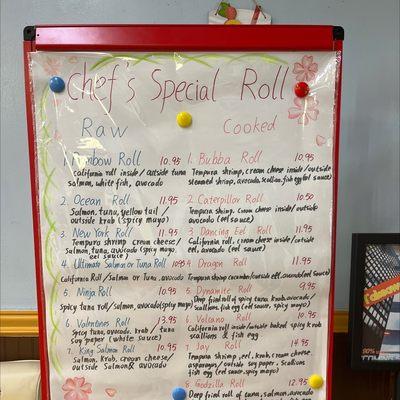 Chef's Special Roll
Raw
Cooked
1. Rainbow Roll 10.95
california roll inside/outside tuna
salmon, white fish, avocado
2. Ocean Roll 11.95
Salmon, tuna, yellow tail/
outside krab (spicy mayo)
3. New York Roll 11.95
Tempura shrimp cream cheese/
Salmon, tuna, avocado (spicy mayo,
eel sauce)
4. Ultimate Salmon or Tuna Roll 10.95
California Roll/Salmon or Tuna, avocado
5. Ninja Roll 10.95
Spicy tuna roll/salmon, avocado (spicy mayo)
6. Valentines Roll 13.95
Spicy tuna, avocado, krab/tuna
soy paper (white sauce)
7. King Salmon Roll 10.95
Salmon, Krab, cream cheese/
outside Salmon & avocado
1. Bubba Roll 10.95
Tempura shrimp, cream cheese inside/outside
steamed shrimp, avocado, scallion, fish egg (eel sauce)
2. Caterpillar Roll 10.50
Tempura shrimp, cream cheese inside/outside
avocado (eel sauce)
3. Dancing Eel Roll 11.95
California roll, cream cheese inside/outside
eel, avocado (eel sauce)
4. Dragon Roll 11.95
Tempura shrimp cucumber/outside eel, avocado (eel sauce)
5. Dynamite Roll 9.95
Deep fried roll of spicy tuna krab, avocado/
scallions, fish egg (eel sauce, spicy mayo)
6. Volcano Roll 10.95
California roll inside/outside baked spicy krab
scallions & fish egg
7. Jay Roll 14.95
Tempura shrimp, eel, krab, cream cheese,
asparagus/outside soy paper, scallions
fish egg (eel sauce, spicy mayo)
8. Godzilla Roll 12.95
Deep fried roll of tuna, salmon, avocado